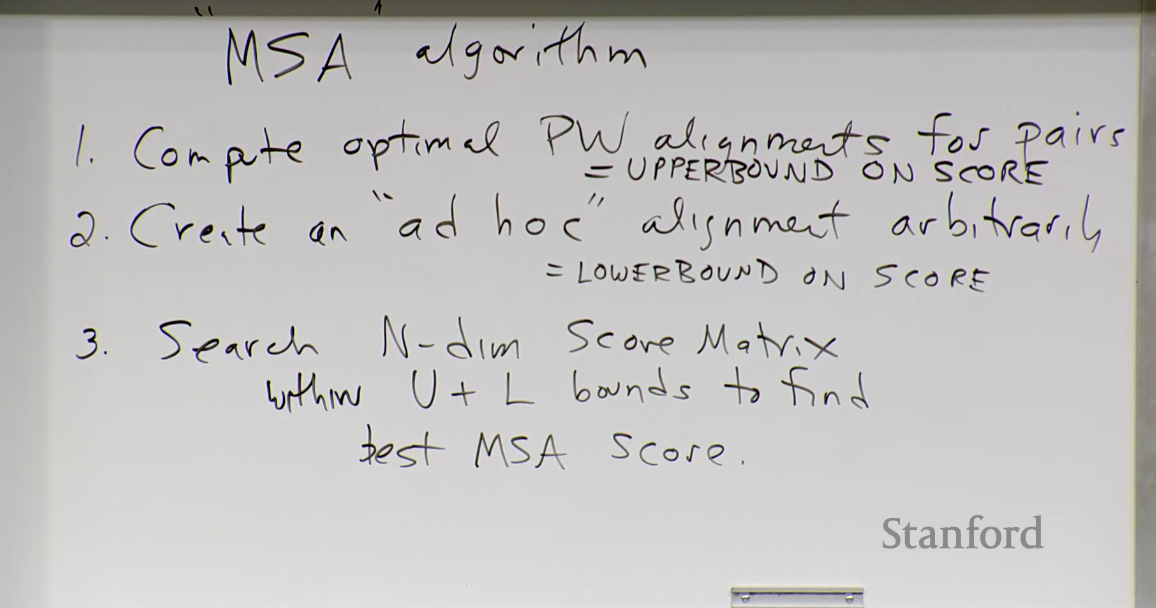 "MSA" algorithm
1. Compute optimal PW alignments for pairs
= UPPERBOUND ON SCORE
2. Create an "ad hoc" alignment arbitrarily
= LOWERBOUND ON SCORE
3. Search N-dim Score Matrix
within U + L bounds to find
best MSA score.
Stanford